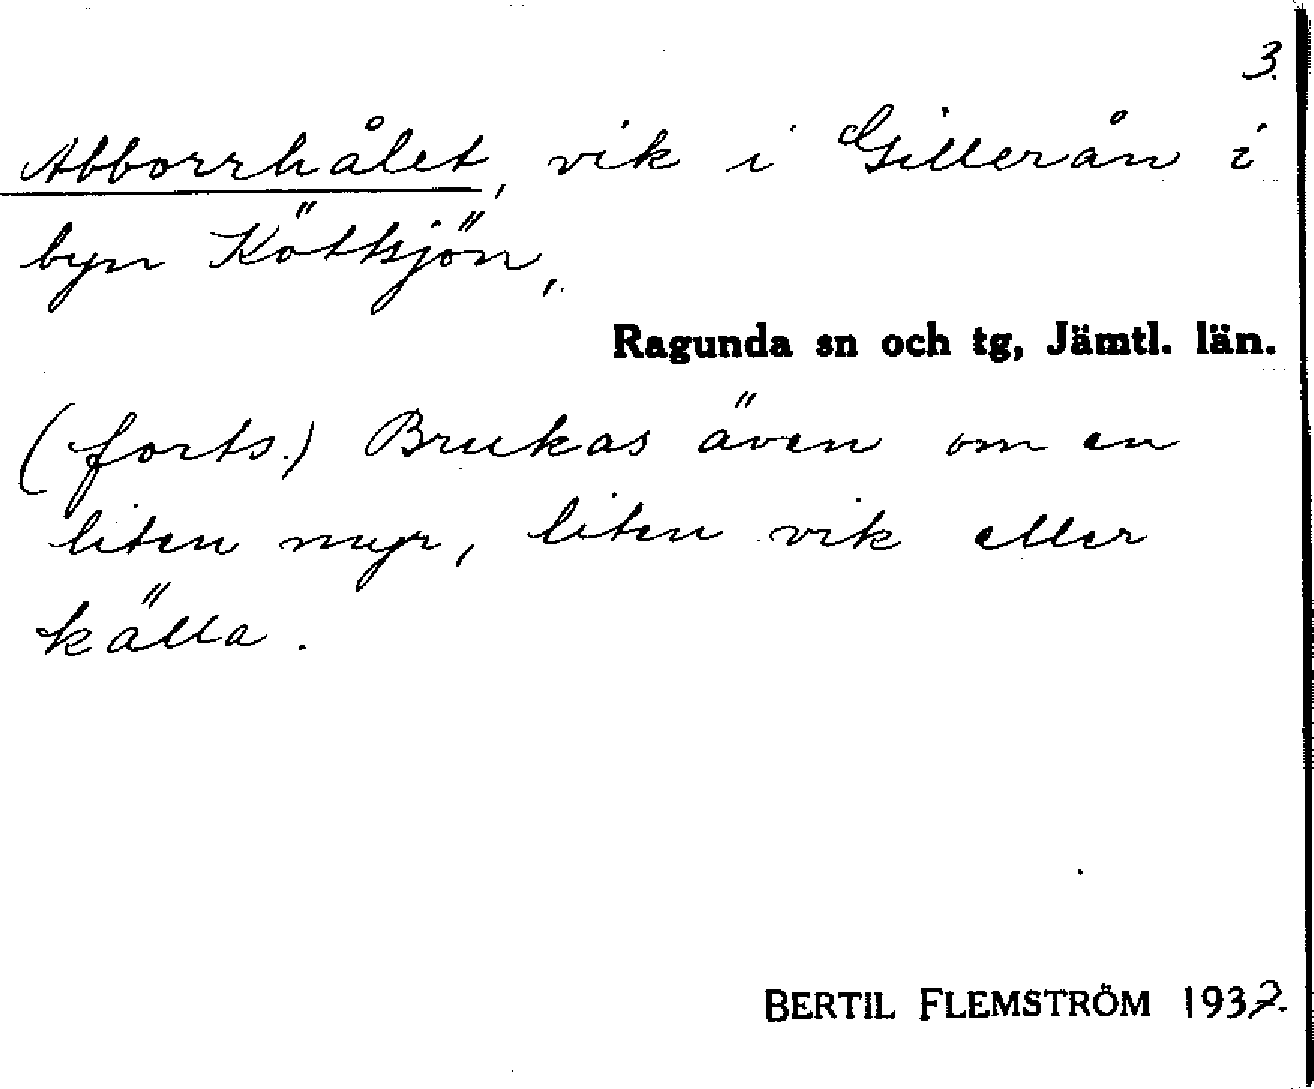 3.
Abborrhålet, vik i Gillerån i
byn Köttsjön,
Ragunda sn och tg, Jämtl. län.
(forts.) Brukas även om en
liten myr, liten vik eller
källa.
BERTIL FLEMSTRÖM 1932.